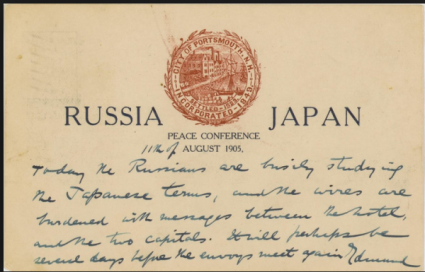 CITY OF PORTSMOUTH, N.H.
INCORPORATED 1849
RUSSIA JAPAN
PEACE CONFERENCE
11th of AUGUST 1905,
Today the Russians are busily studying
the Japanese terms, and the wires are
burdened with messages between the hotel,
and the two capitals. It will perhaps be
several days before the envoys meet again. Edmund